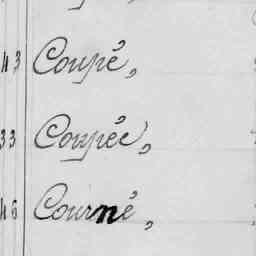 43 Coupé,
33 Coupée,
46 Courné,